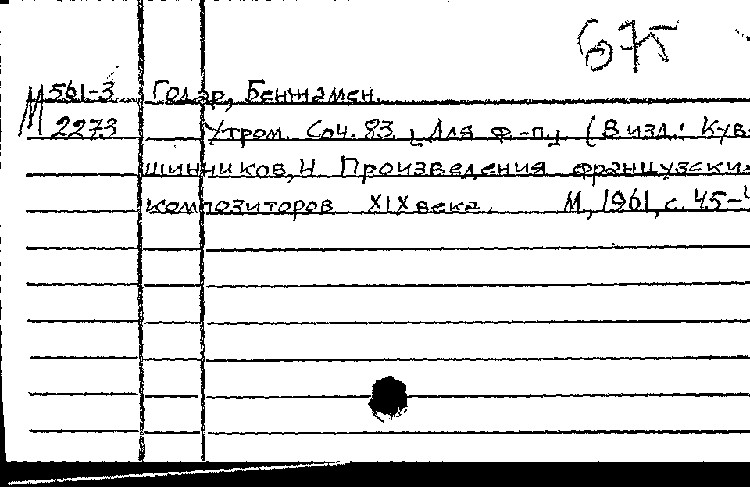 675
М 561-3 Годар, Бенжамен.
2273 Утром. Соч. 83 [Для ф.-п.] (В изд.: Кув-
шинников, Н. Произведения французски
композиторов XIX века. М., 1961, с. 45-4